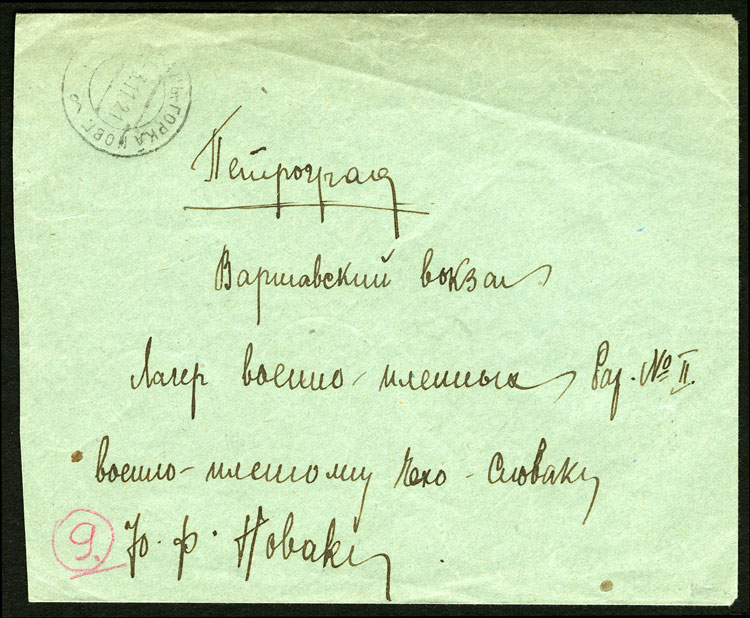 ГОРКА НОВГ.
3.11.21
Петроград
Варшавский вокзал
Лагер военно-пленных Бар. № II.
военно-пленому Чехо-Словаку
9. Ю. Ф. Новаку